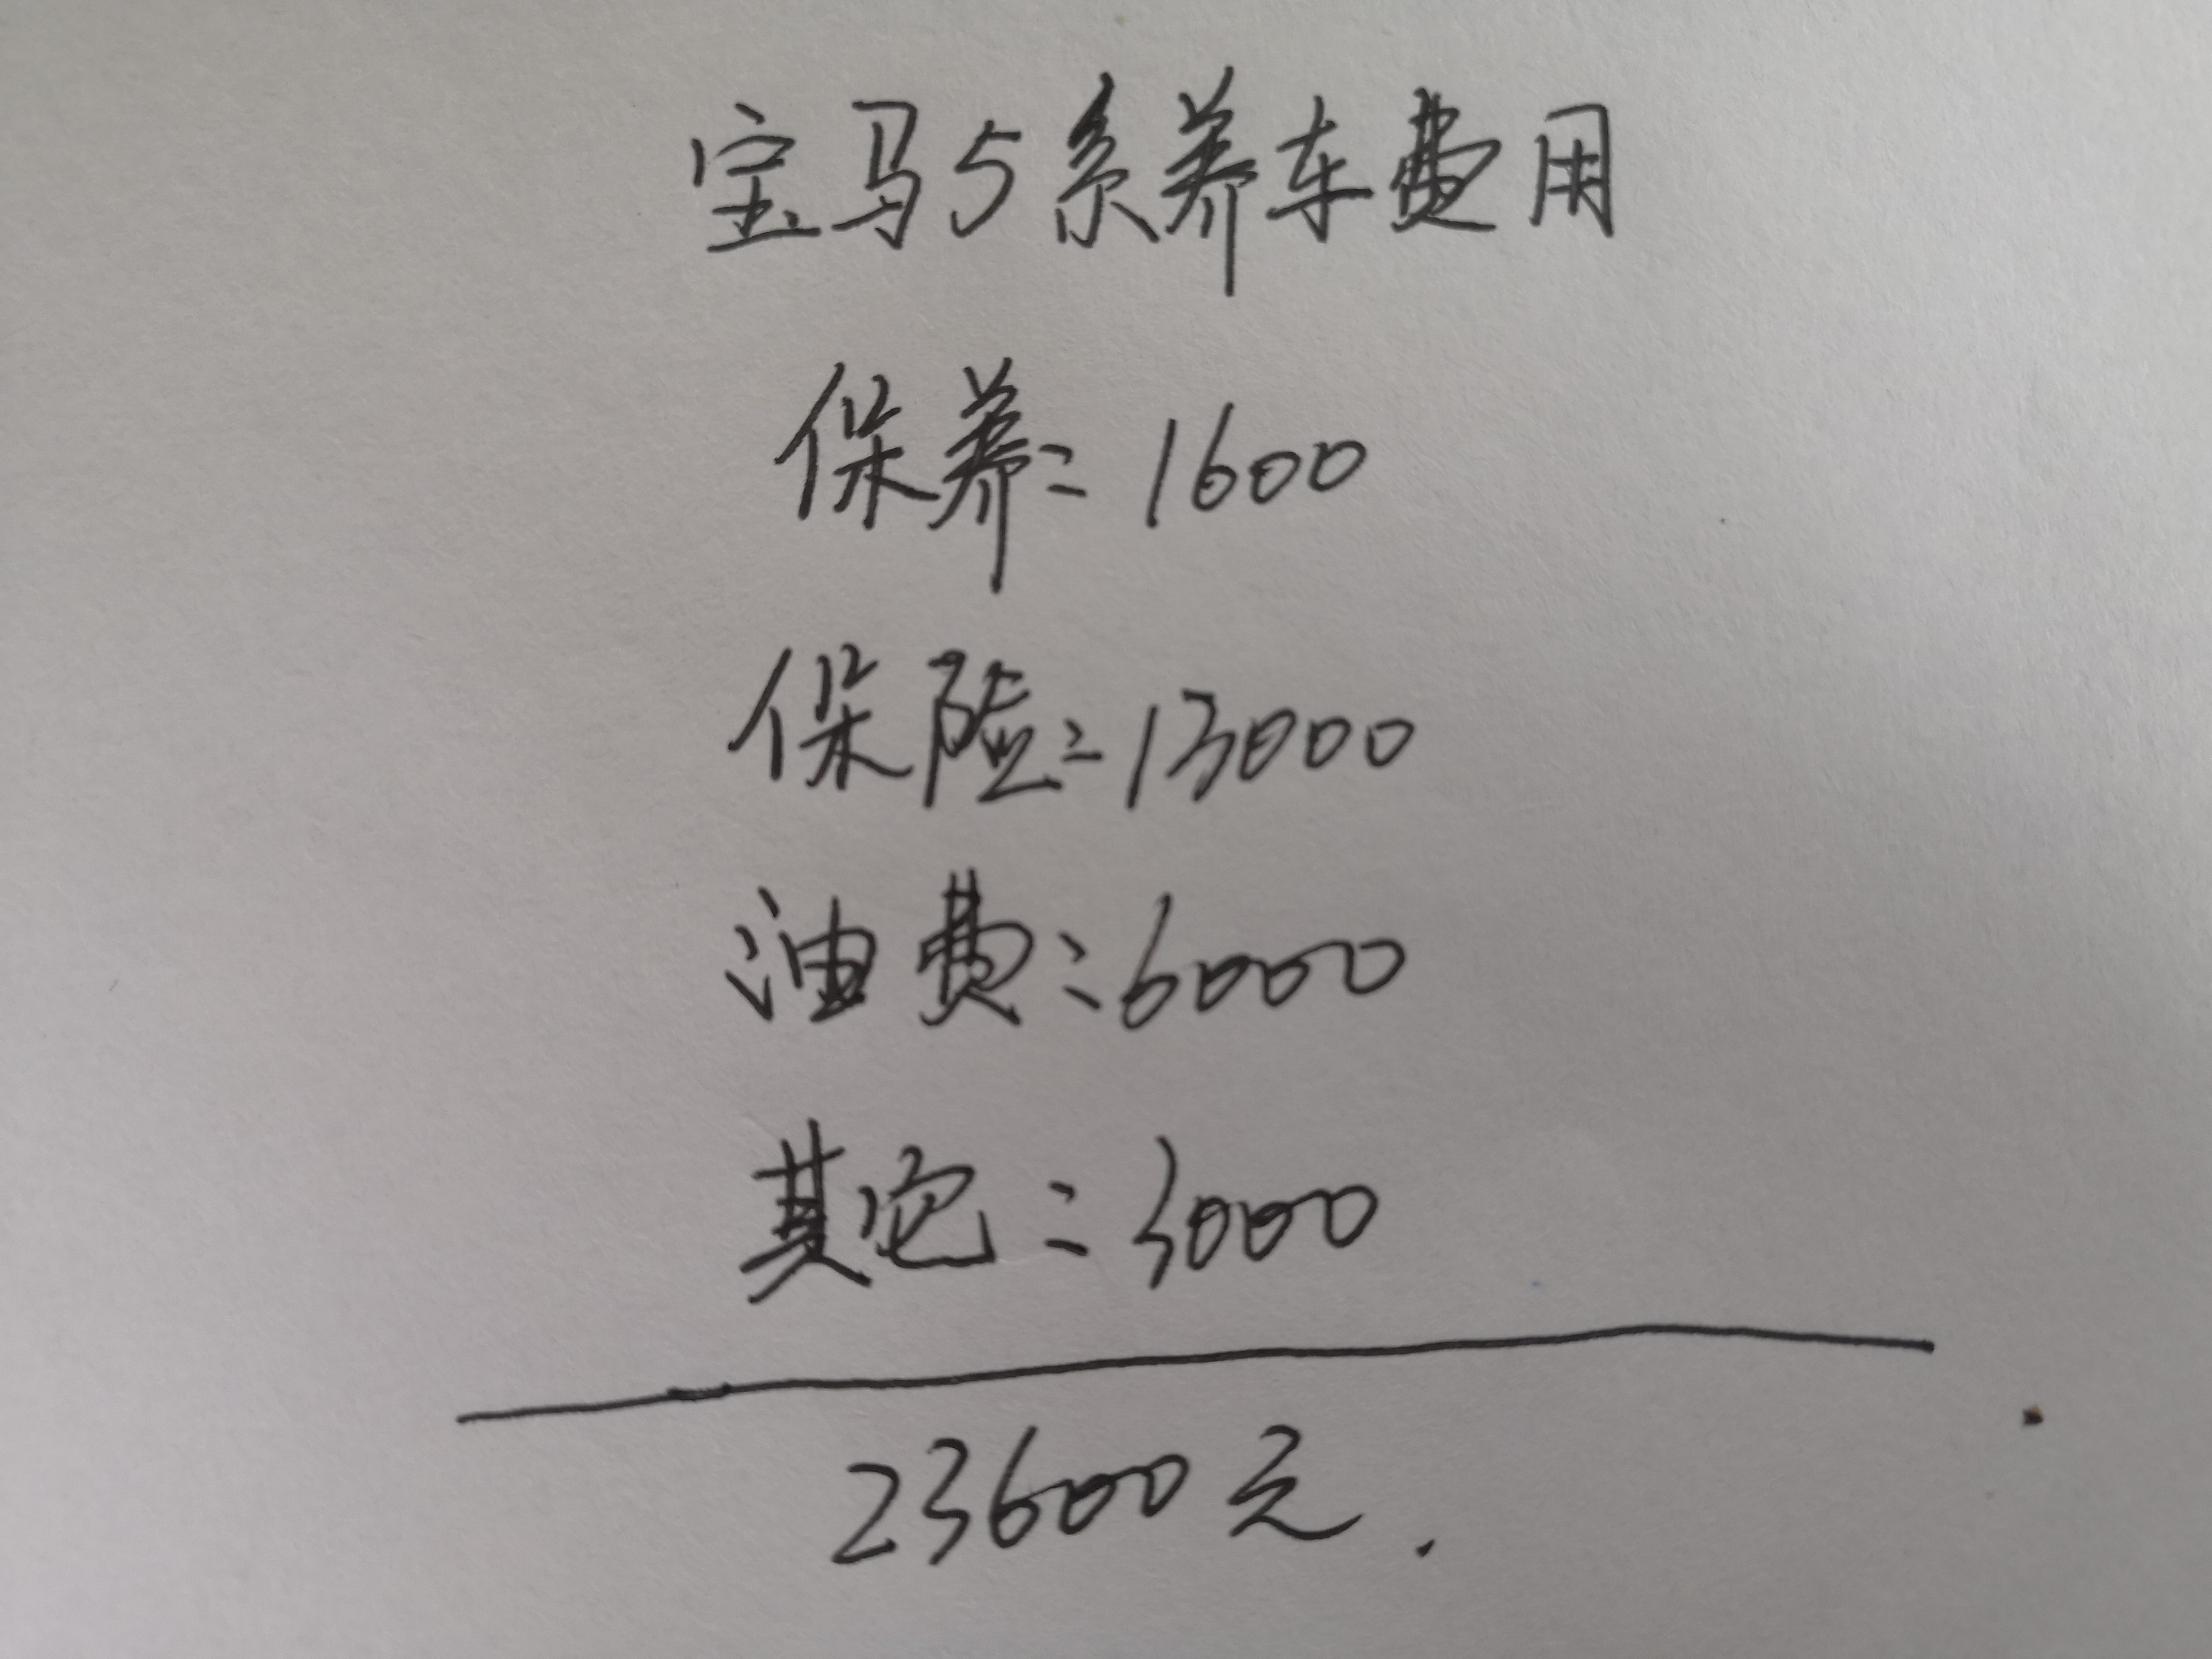 宝马5系养车费用
保养：1600
保险：13000
油费：6000
其它：3000
23600元.